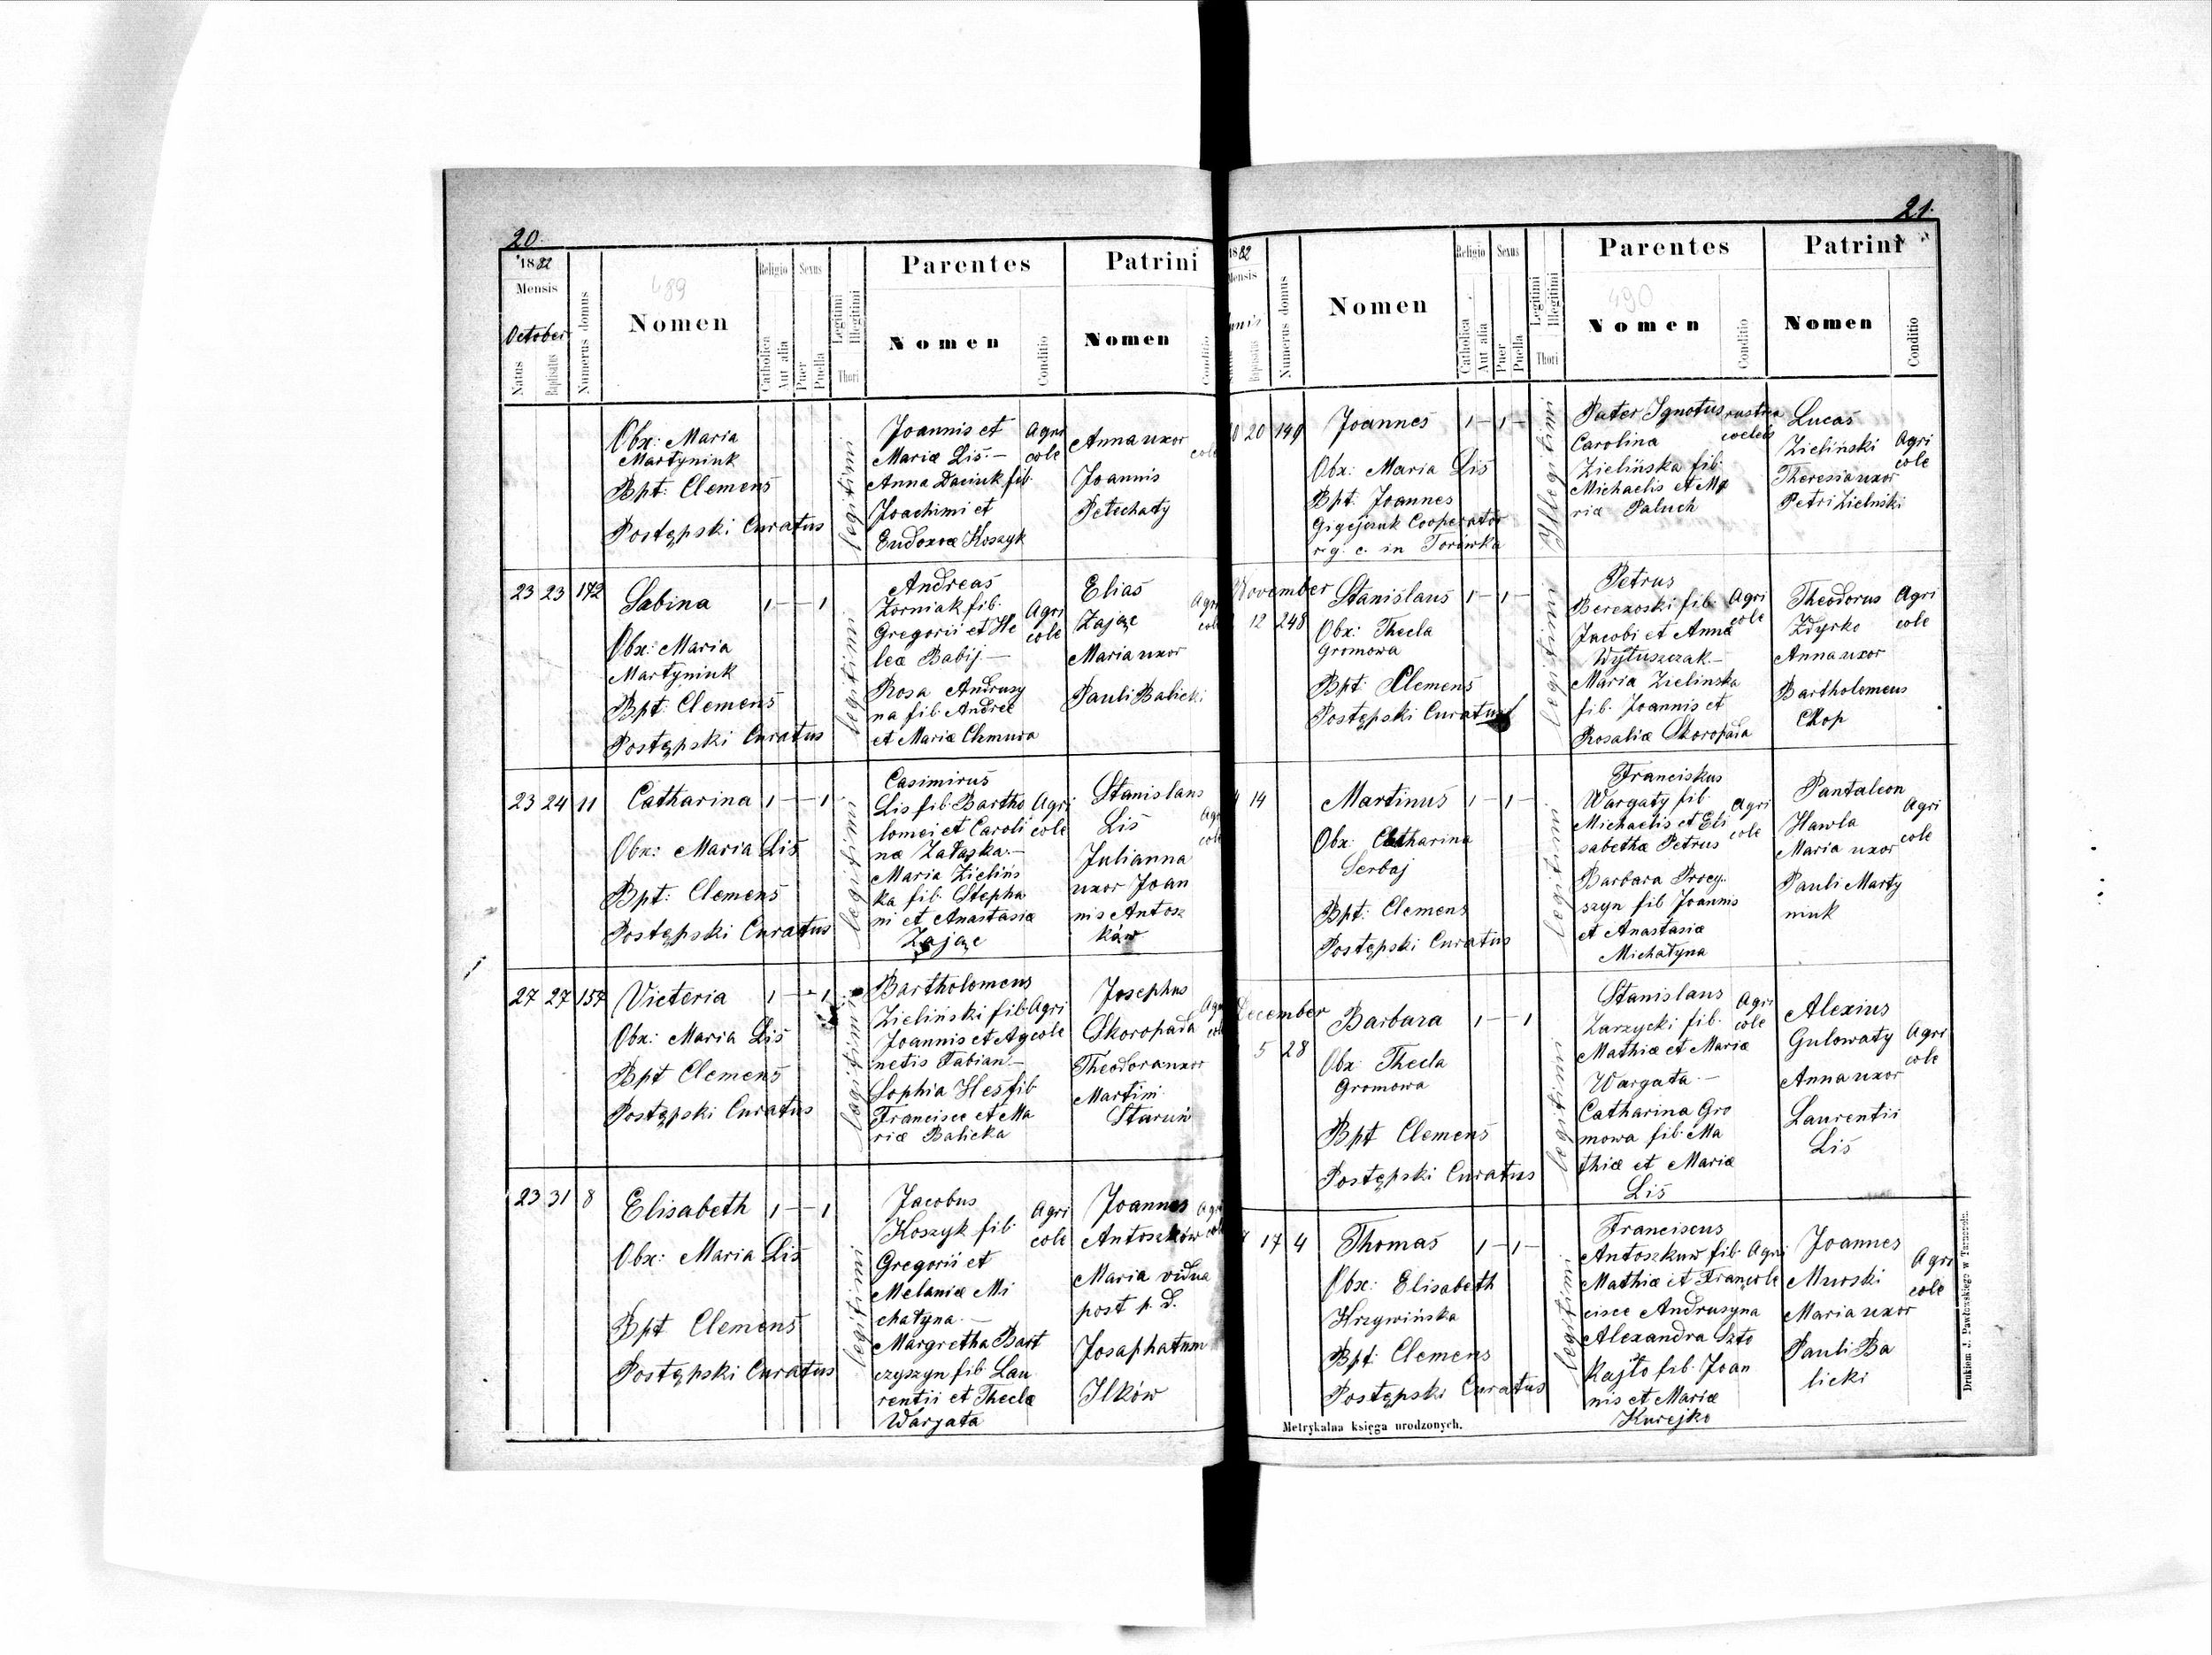 20.
1882
Mensis
October
Natus
Baptisatus
Numerus domus
489
Nomen
Religio
Catholica
Aut alia
Sexus
Puer
Puella
Legitimi
Illegitimi
Thori
Parentes
Nomen
Conditio
Patrini
Nomen
Conditio
Obx: Maria
Martyniuk
Bpt: Clemens
Postępski Curatus
legitimi
Joannis et
Mariæ Lis.—
Anna Daciuk fib.
Joachimi et
Eudoxæ Koszyk
Agri
colæ
Anna uxor
Joannis
Petechaty
23 23 172
Sabina
1 — — 1
Obx: Maria
Martyniuk
Bpt: Clemens
Postępski Curatus
legitimi
Andreas
Zorniak fib.
Gregorii et He
leæ Babij.—
Rosa Andrusy
na fib. Andreæ
et Mariæ Chmura
Agri
colæ
Elias
Zając
Maria uxor
Pauli Balicki
Agri
colæ
23 24 11
Catharina
1 — — 1
Obx: Maria Lis
Bpt: Clemens
Postępski Curatus
legitimi
Casimirus
Lis fib. Bartho
lomei et Caroli
næ Załaska.—
Maria Zielińs
ka fib. Stepha
ni et Anastasiæ
Zając
Agri
colæ
Stanislaus
Lis
Julianna
uxor Joan
nis Antosz
ków
27 27 157
Victoria
1 — — 1
Obx: Maria Lis
Bpt Clemens
Postępski Curatus
legitimi
Bartholomeus
Zieliński fib.
Joannis et Ag
netis Fabian.—
Sophia Hes fib
Francisci et Ma
riæ Balicka
Agri
colæ
Josephus
Skoropada
Theodora uxor
Martini
Staruń
23 31 8
Elisabeth
1 — — 1
Obx: Maria Lis
Bpt Clemens
Postępski Curatus
legitimi
Jacobus
Koszyk fib.
Gregorii et
Melaniæ Mi
chatyna.—
Margretha Bart
czyszyn fib. Lau
rentii et Theclæ
Wargata
Agri
colæ
Joannes
Antoszków
Maria vidua
post p. d.
Josaphatum
Ilków
21.
1882
Mensis
Baptisatus
Numerus domus
Nomen
Religio
Catholica
Aut alia
Sexus
Puer
Puella
Legitimi
Illegitimi
Thori
Parentes
490
Nomen
Conditio
Patrini
Nomen
Conditio
20 149
Joannes
1 — 1 —
Obx: Maria Lis
Bpt: Joannes
Gigejczuk Cooperator
r. g. c. in Torówka
Illegitimi
Pater Ignotus
Carolina
Zielińska fib.
Michaelis et Ma
riæ Paluch
Lucas
Zieliński
Theresia uxor
Petri Zieliński
Agri
colæ
November
12 248
Stanislaus
1 — 1 —
Obx: Thecla
Gromowa
Bpt: Clemens
Postępski Curatus
legitimi
Petrus
Berezoski fib.
Jacobi et Annæ
Wytuszczak.—
Maria Zielinska
fib. Joannis et
Rosaliæ Skoropada
Agri
colæ
Theodorus
Zdyrko
Anna uxor
Bartholomeus
Chop
Agri
colæ
14
Martinus
1 — 1 —
Obx: Catharina
Serbaj
Bpt: Clemens
Postępski Curatus
legitimi
Franciskus
Wargaty fib
Michaelis et Eli
sabethæ Petrus
Barbara Procy
szyn fib Joannis
et Anastasiæ
Michatyna
Agri
colæ
Pantaleon
Hawla
Maria uxor
Pauli Marty
niuk
Agri
colæ
December
5 28
Barbara
1 — — 1
Obx Thecla
Gromowa
Bpt Clemens
Postępski Curatus
legitimi
Stanislaus
Zarzycki fib.
Mathiæ et Mariæ
Wargata.—
Catharina Gro
mowa fib. Ma
thiæ et Mariæ
Lis
Agri
colæ
Alexius
Gulowaty
Anna uxor
Laurentii
Lis
Agri
colæ
17 4
Thomas
1 — 1 —
Obx: Elisabeth
Krzywińska
Bpt: Clemens
Postępski Curatus
legitimi
Franciscus
Antoszkuw fib.
Mathiæ et Fran
ciscæ Andrusyna
Alexandra Szto
kajto fib. Joan
nis et Mariæ
Kurejko
Agri
colæ
Joannes
Murski
Maria uxor
Pauli Ba
licki
Agri
colæ
Metrykalna księga urodzonych.
Drukiem J. Pawłowskiego w Tarnopolu.